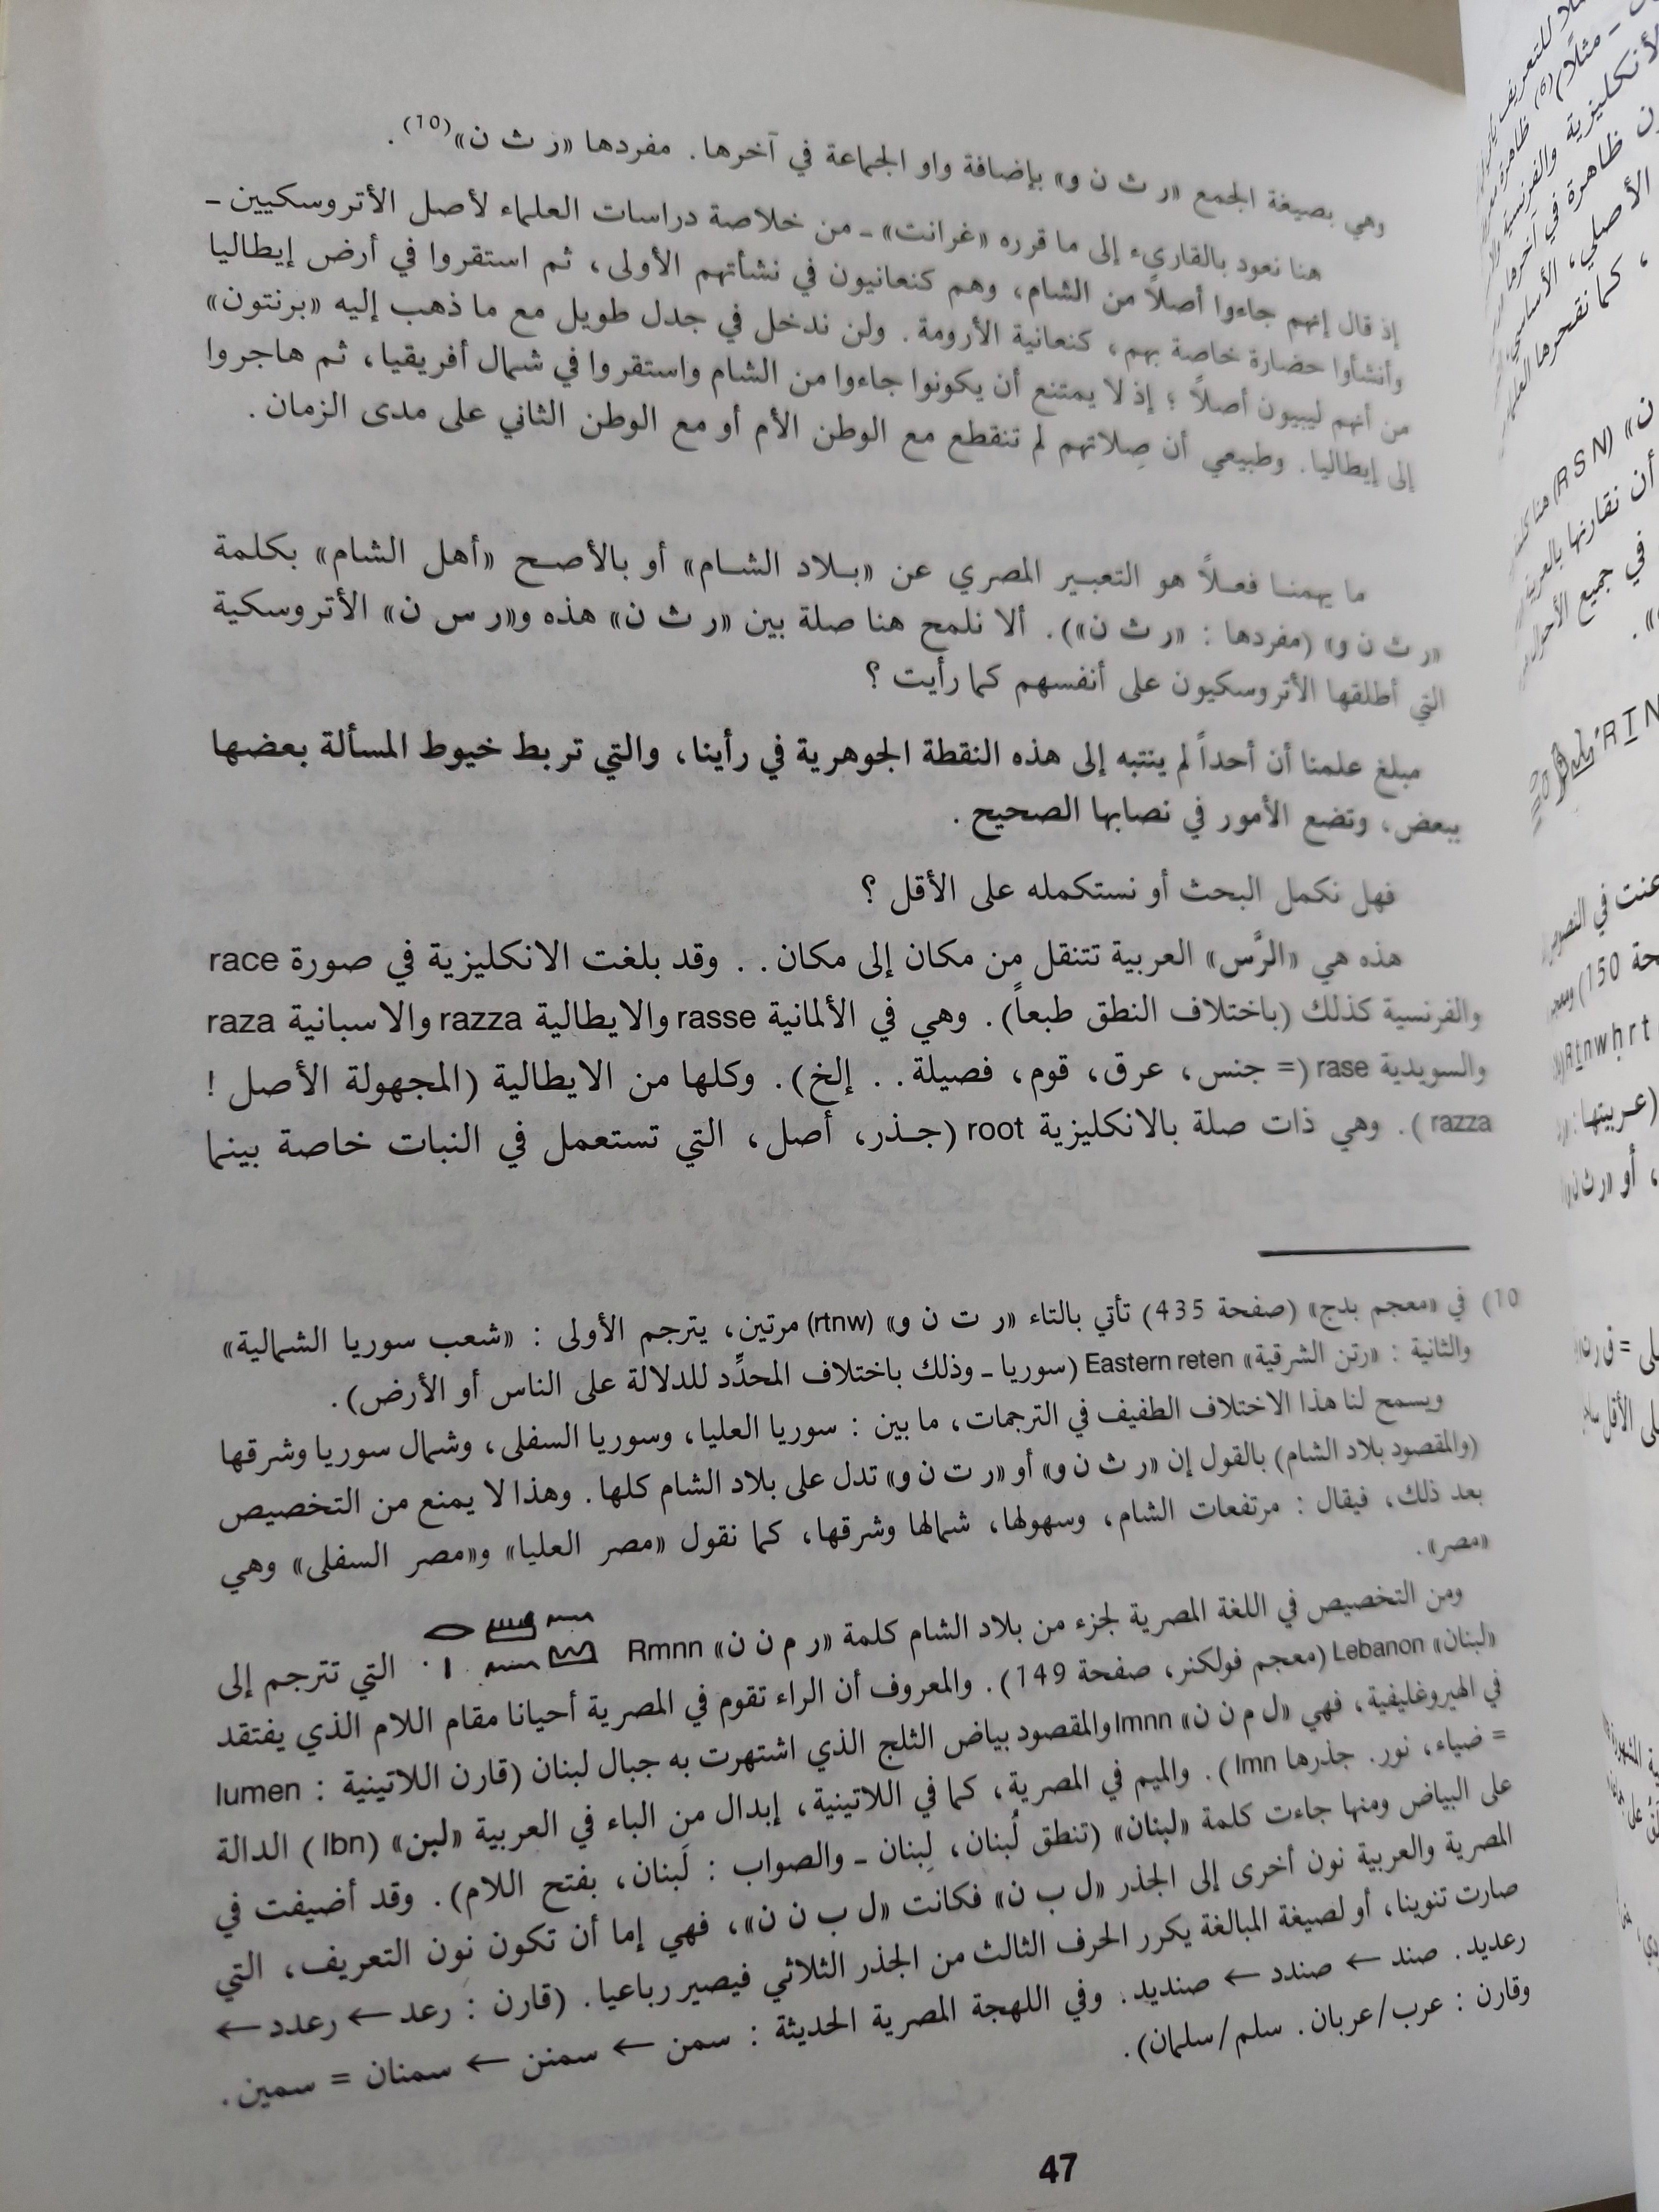 وهي بصيغة الجمع «ر ث ن و» بإضافة واو الجماعة في آخرها. مفردها «ر ث ن»(10).
هنا نعود بالقارىء إلى ما قرره «غرانت» ـ من خلاصة دراسات العلماء لأصل الأتروسكيين ـ
إذ قال إنهم جاءوا أصلاً من الشام، وهم كنعانيون في نشأتهم الأولى، ثم استقروا في أرض إيطاليا
وأنشأوا حضارة خاصة بهم، كنعانية الأرومة. ولن ندخل في جدل طويل مع ما ذهب إليه «برنتون»
من أنهم ليبيون أصلاً ؛ إذ لا يمتنع أن يكونوا جاءوا من الشام واستقروا في شمال أفريقيا، ثم هاجروا
إلى إيطاليا. وطبيعي أن صِلاتهم لم تنقطع مع الوطن الأم أو مع الوطن الثاني على مدى الزمان.
ما يهمنا فعلاً هو التعبير المصري عن «بلاد الشام» أو بالأصح «أهل الشام» بكلمة
«ر ث ن و» (مفردها : «ر ث ن»). ألا نلمح هنا صلة بين «ر ث ن» هذه و«ر س ن» الأتروسكية
التي أطلقها الأتروسكيون على أنفسهم كما رأيت ؟
مبلغ علمنا أن أحداً لم ينتبه إلى هذه النقطة الجوهرية في رأينا، والتي تربط خيوط المسألة بعضها
ببعض، وتضع الأمور في نصابها الصحيح.
فهل نكمل البحث أو نستكمله على الأقل ؟
هذه هي «الرَّس» العربية تتنقل من مكان إلى مكان.. وقد بلغت الانكليزية في صورة race
والفرنسية كذلك (باختلاف النطق طبعاً). وهي في الألمانية rasse والايطالية razza والاسبانية raza
والسويدية rase (= جنس، عرق، قوم، فصيلة.. إلخ). وكلها من الايطالية (المجهولة الأصل !
razza ). وهي ذات صلة بالانكليزية root (جذر، أصل، التي تستعمل في النبات خاصة بينما
10) في «معجم بدج» (صفحة 435) تأتي بالتاء «ر ت ن و» (rtnw) مرتين، يترجم الأولى : «شعب سوريا الشمالية»
والثانية : «رتن الشرقية» Eastern reten (سوريا ـ وذلك باختلاف المحدِّد للدلالة على الناس أو الأرض).
ويسمح لنا هذا الاختلاف الطفيف في الترجمات، ما بين : سوريا العليا، وسوريا السفلى، وشمال سوريا وشرقها
(والمقصود بلاد الشام) بالقول إن «ر ث ن و» أو «ر ت ن و» تدل على بلاد الشام كلها. وهذا لا يمنع من التخصيص
بعد ذلك، فيقال : مرتفعات الشام، وسهولها، شمالها وشرقها، كما نقول «مصر العليا» و«مصر السفلى» وهي
«مصر».
ومن التخصيص في اللغة المصرية لجزء من بلاد الشام كلمة «ر م ن ن» Rmnn التي تترجم إلى
«لبنان» Lebanon (معجم فولكنر، صفحة 149). والمعروف أن الراء تقوم في المصرية أحيانا مقام اللام الذي يفتقد
في الهيروغليفية، فهي «ل م ن ن» lmnn والمقصود بياض الثلج الذي اشتهرت به جبال لبنان (قارن اللاتينية : lumen
= ضياء، نور. جذرها lmn ). والميم في المصرية، كما في اللاتينية، إبدال من الباء في العربية «لبن» (lbn ) الدالة
على البياض ومنها جاءت كلمة «لبنان» (تنطق لُبنان، لِبنان ـ والصواب : لَبنان، بفتح اللام). وقد أضيفت في
المصرية والعربية نون أخرى إلى الجذر «ل ب ن» فكانت «ل ب ن ن»، فهي إما أن تكون نون التعريف، التي
صارت تنوينا، أو لصيغة المبالغة يكرر الحرف الثالث من الجذر الثلاثي فيصير رباعيا. (قارن : رعد ← رعدد ←
رعديد. صند ← صندد ← صنديد. وفي اللهجة المصرية الحديثة : سمن ← سمنن ← سمنان = سمين.
وقارن : عرب/عربان. سلم/سلمان).
47